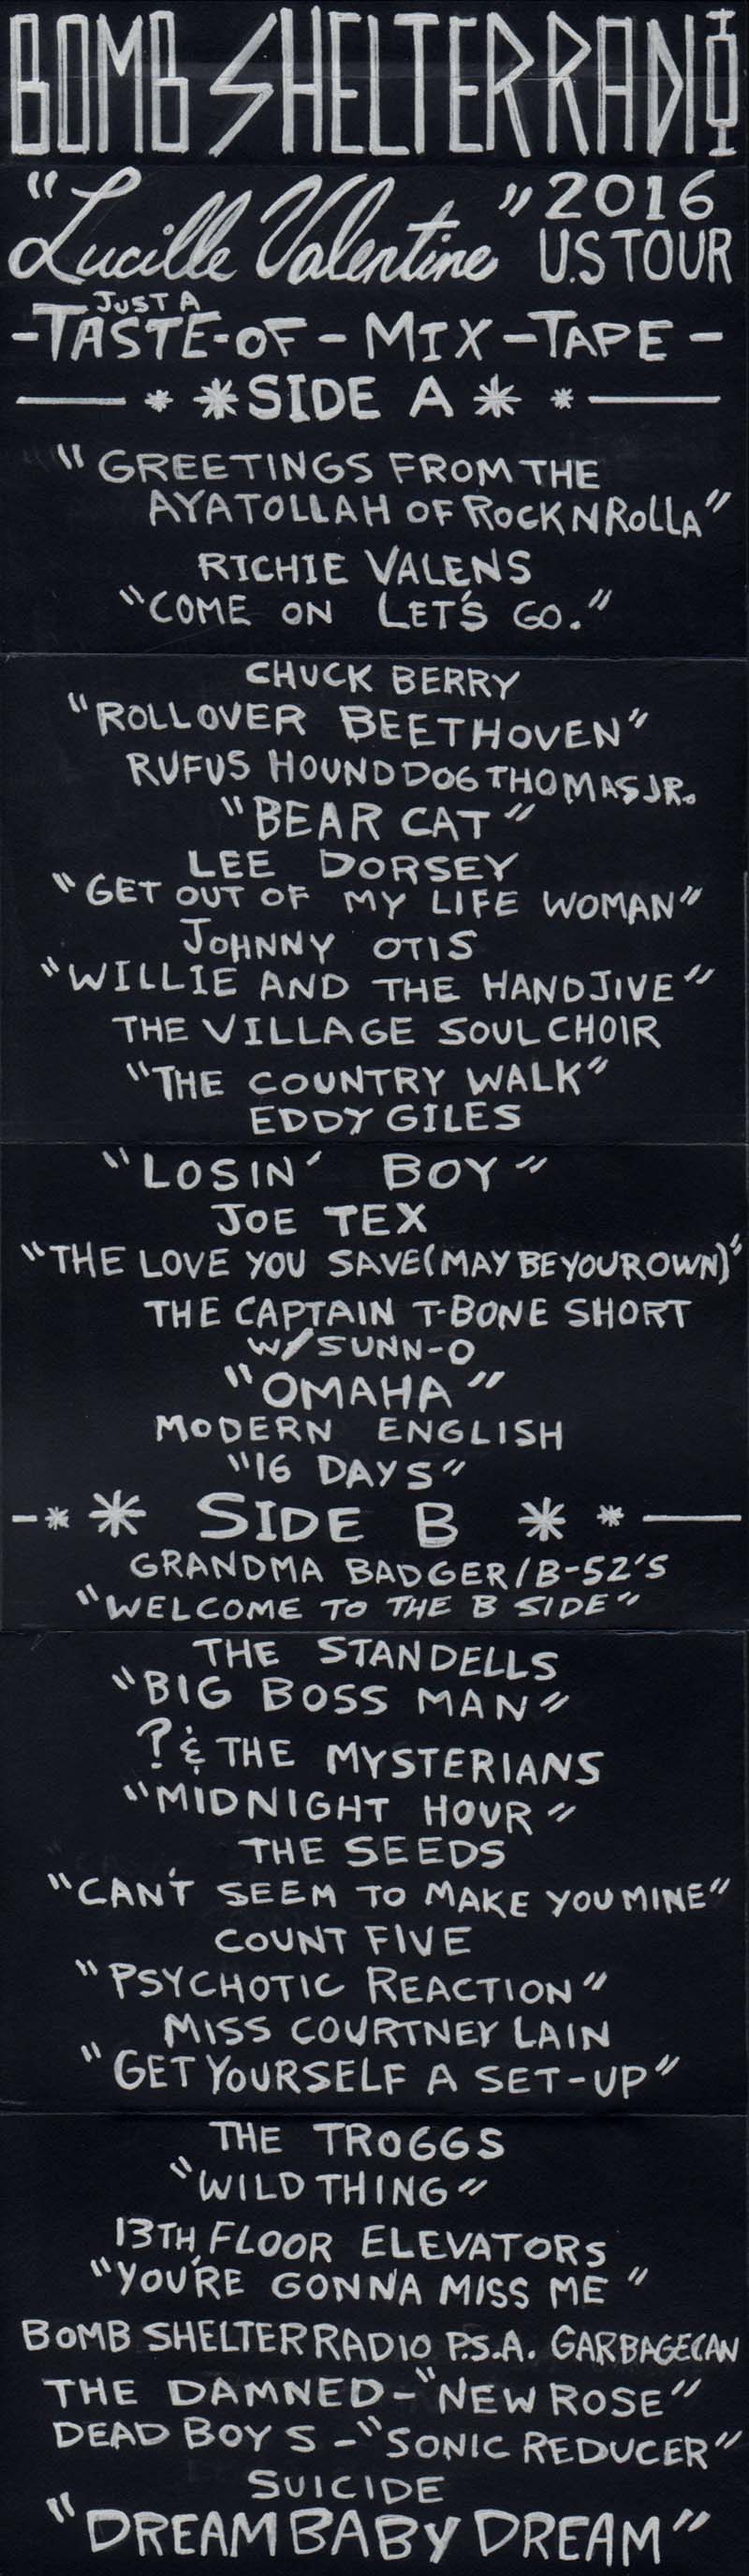 BOMB SHELTER RADIO
"Lucille Valentine" 2016
U.S TOUR
JUST A
-TASTE-OF-MIX-TAPE-
* * SIDE A * *
"GREETINGS FROM THE
AYATOLLAH OF ROCK N ROLLA"
RICHIE VALENS
"COME ON LET'S GO."
CHUCK BERRY
"ROLLOVER BEETHOVEN"
RUFUS HOUND DOG THOMAS JR.
"BEAR CAT"
LEE DORSEY
"GET OUT OF MY LIFE WOMAN"
JOHNNY OTIS
"WILLIE AND THE HAND JIVE"
THE VILLAGE SOUL CHOIR
"THE COUNTRY WALK"
EDDY GILES
"LOSIN' BOY"
JOE TEX
"THE LOVE YOU SAVE (MAY BE YOUR OWN)"
THE CAPTAIN T-BONE SHORT
W/SUNN-O
"OMAHA"
MODERN ENGLISH
"16 DAYS"
-* * SIDE B * *
GRANDMA BADGER/B-52'S
"WELCOME TO THE B SIDE"
THE STANDELLS
"BIG BOSS MAN"
? & THE MYSTERIANS
"MIDNIGHT HOUR"
THE SEEDS
"CAN'T SEEM TO MAKE YOU MINE"
COUNT FIVE
"PSYCHOTIC REACTION"
MISS COURTNEY LAIN
"GET YOURSELF A SET-UP"
THE TROGGS
"WILD THING"
13TH FLOOR ELEVATORS
"YOU'RE GONNA MISS ME"
BOMB SHELTER RADIO P.S.A. GARBAGECAN
THE DAMNED-"NEW ROSE"
DEAD BOYS-"SONIC REDUCER"
SUICIDE
"DREAM BABY DREAM"